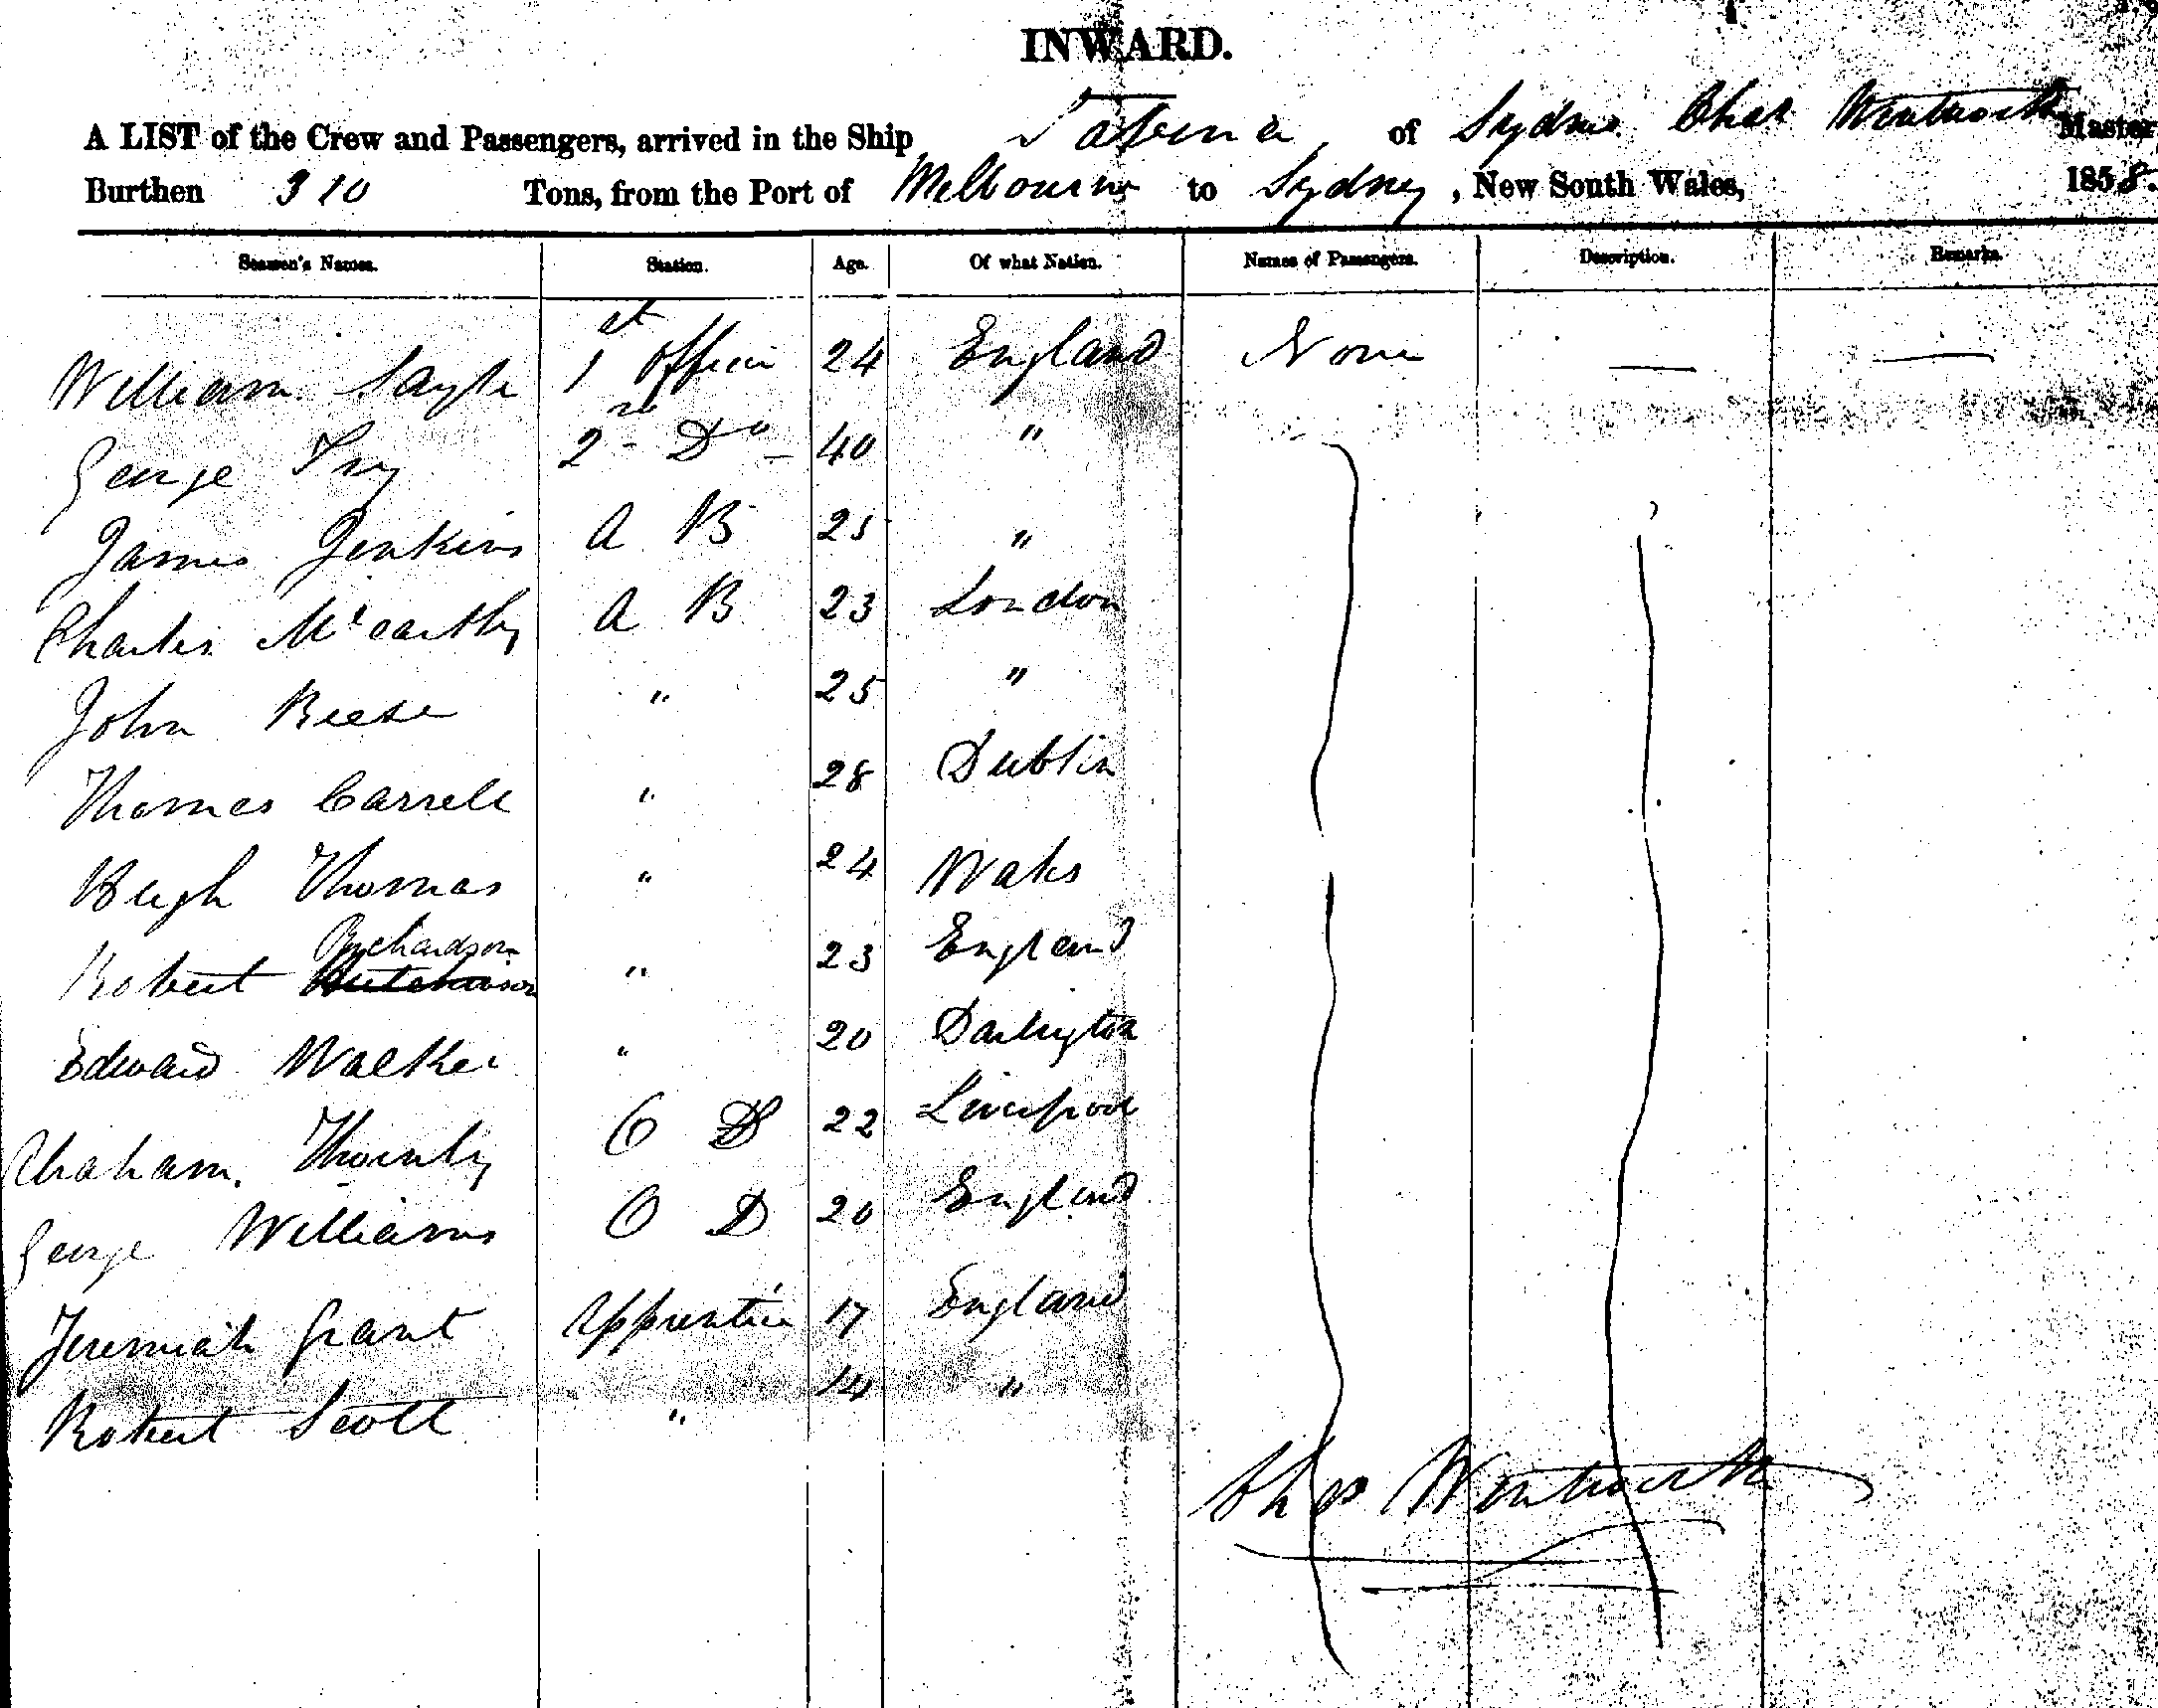 INWARD.
A LIST of the Crew and Passengers, arrived in the Ship of Sydney Chas Wentworth Master
Burthen 310 Tons, from the Port of Melbourne to Sydney, New South Wales, 1858.
Seamen's Names. Station. Age. Of what Nation. Names of Passengers. Description. Remarks.
William Sayle 1st Officer 24 England None — —
George 2nd Do 40 "
James Jenkins A B 25 "
Charles McCarthy A B 23 London
John Reese " 25 "
Thomas Carrell " 28 Dublin
Hugh Thomas " 24 Wales
Richardson
Robert Hutchinson " 23 England
Edward Walker " 20 Darlington
Abraham Thornby O D 22 Liverpool
George Williams O D 20 England
Jeremiah Grant Apprentice 17 England
Robert Scott " 14 "
Chas Wentworth